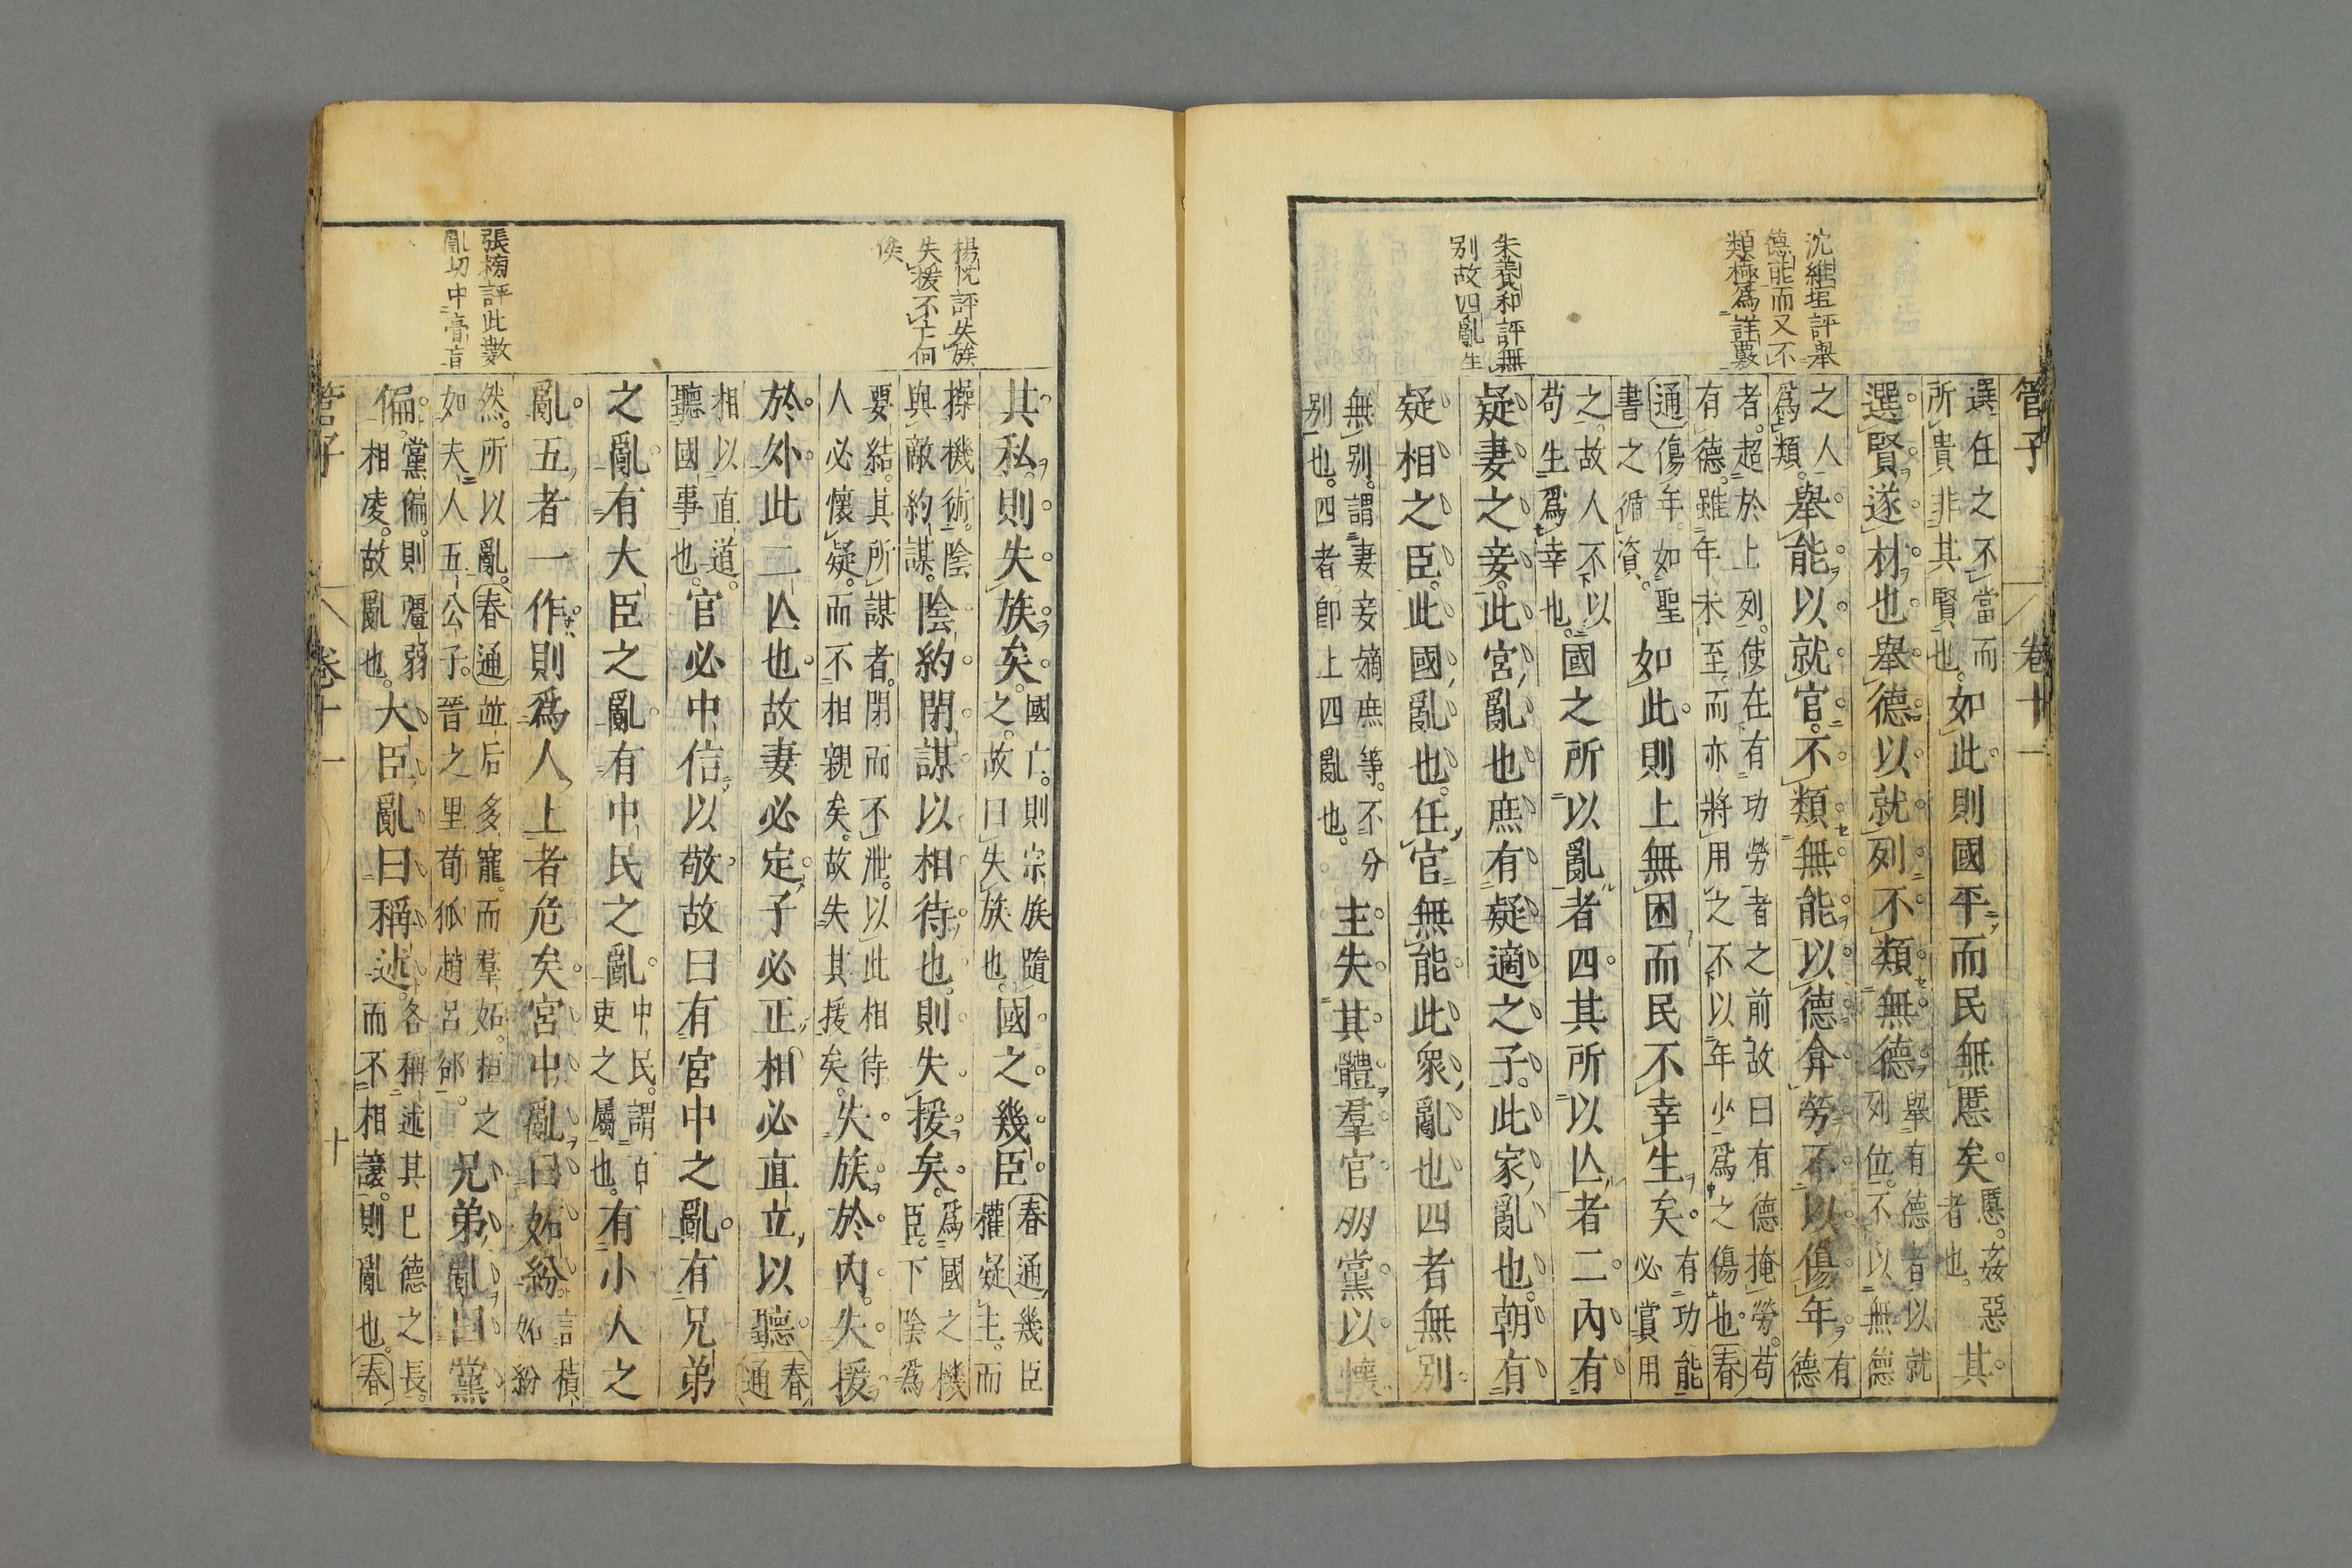 沈維垣評舉
德能而又不
類極爲詳覈
朱養和評無
別故四亂生
管子 卷十一
選任之不當而
所貴非其賢也。
如此則國平而民無慝矣。
慝。姦惡
者也。
其
選賢遂材也。舉德以就列。不類無德。
舉有德者以就
列位。不以無德
之人
爲類。
舉能以就官。不類無能。以德弇勞。不以傷年。
有
德
者。超於上列。使在有功勞者之前。故曰有德掩勞。苟
有德。雖年未至。而亦將用之。不以年少爲之傷也。春
通傷年。如聖
書之循資。
如此則上無困而民不幸生矣。
有功能
必賞用
之。故人不以
苟生爲幸也。
國之所以亂者四。其所以亾者二。內有
疑妻之妾。此宮亂也。庶有疑適之子。此家亂也。朝有
疑相之臣。此國亂也。任官無能。此衆亂也。四者無別。
無別。謂妻妾嫡庶等。不分
別也。四者。卽上四亂也。
主失其體。羣官朋黨以懷
楊忱評失族
失援不亡何
俟
張榜評此數
亂切中膏肓
其私。則失族矣。
國亡。則宗族隨
之。故曰失族也。
國之幾臣。
春通幾臣
權疑主。而
操機術。陰
與敵約謀。
陰約閉謀以相待也。則失援矣。
爲國之機
臣。下陰爲
要結。其所謀者。閉而不泄。以此相待。
人必懷疑。而不相親矣。故失其援矣。
失族於內。失援
於外。此二亾也。故妻必定。子必正。相必直立以聽。
春
通
相以直道。
聽國事也。
官必中信以敬。故曰有宮中之亂。有兄弟
之亂。有大臣之亂。有中民之亂。
中民。謂百
吏之屬也。
有小人之
亂。五者一作。則爲人上者危矣。宮中亂曰妬紛。
言積
妬紛
然。所以亂。春通並后多寵。而羣妬。桓之
如夫人五公子。晉之里荀狐趙呂郤。
兄弟亂曰黨
偏。
黨偏。則彊弱
相凌。故亂也。
大臣亂曰稱述。
各稱述其已德之長。
而不相讓。則亂也。春
管子 卷十一 十